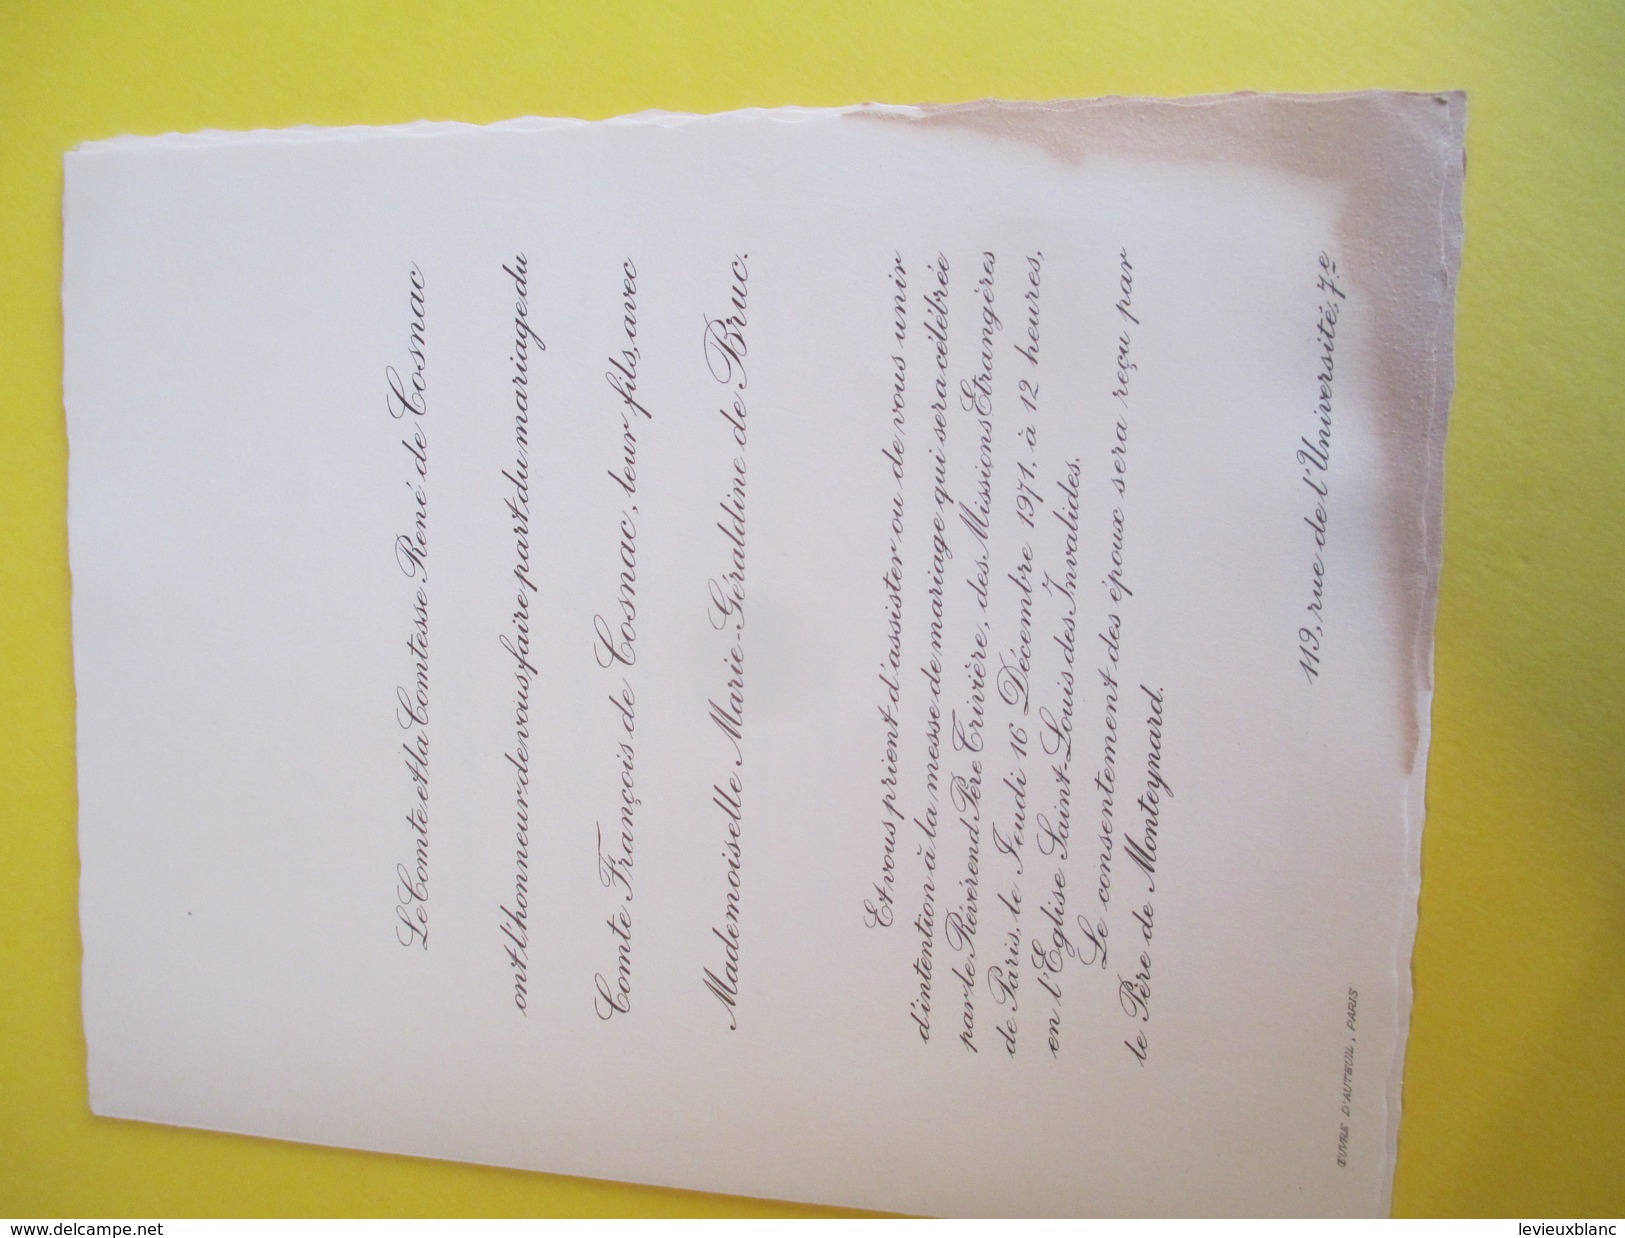 Le Comte et la Comtesse René de Cosnac
ont l'honneur de vous faire part du mariage du
Comte François de Cosnac, leur fils, avec
Mademoiselle Marie-Géraldine de Bruc.
Et vous prient d'assister ou de vous unir
d'intention à la messe de mariage qui sera célébrée
par le Révérend Père Trivière, des Missions Etrangères
de Paris, le Jeudi 16 Décembre 1971, à 12 heures,
en l'Eglise Saint-Louis des Invalides.
Le consentement des époux sera reçu par
le Père de Monteynard.
119, rue de l'Université, 7e
ŒUVRE D'AUTEUIL, PARIS
www.delcampe.net
levieuxblanc